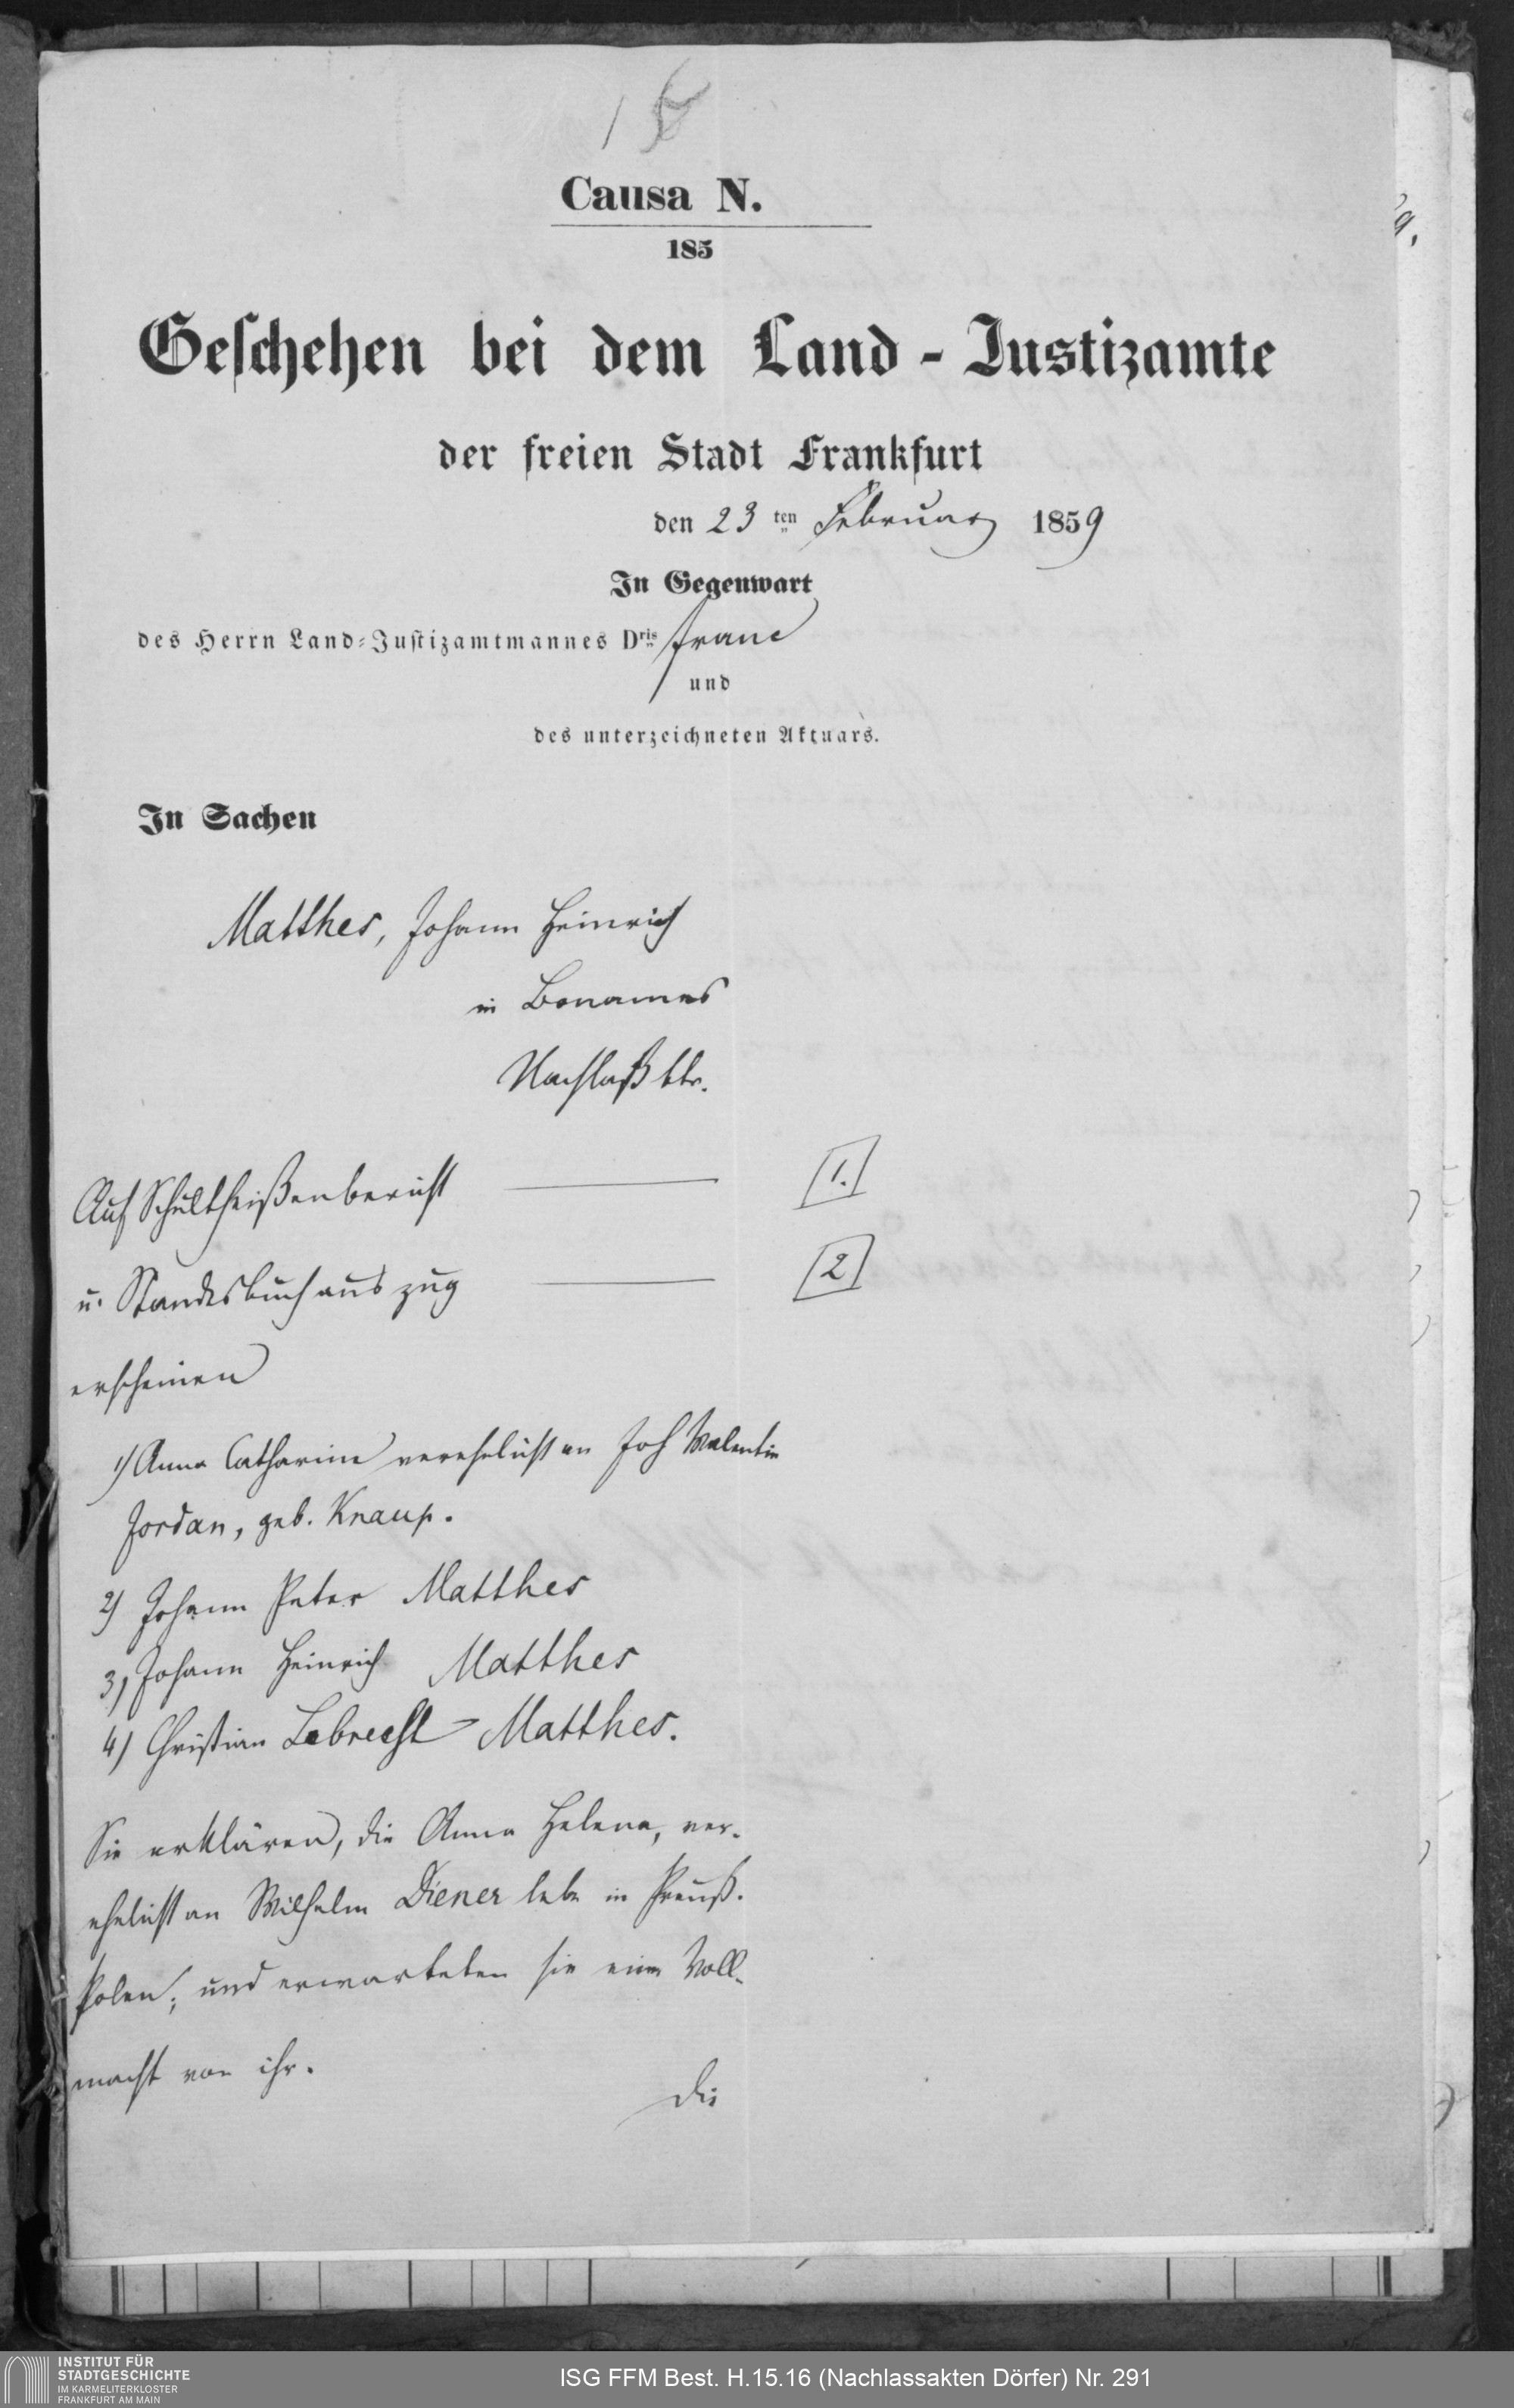 Causa N.
185
Geschehen bei dem Land-Justizamte
der freien Stadt Frankfurt
den 23 ten Februar 1859
In Gegenwart
des Herrn Land-Justizamtmannes Dris
und
des unterzeichneten Aktuars.
In Sachen
Matthes, Johann Heinrich
in Bonames
Nachlaß btr.
Auf Schultheißenbericht 1.
u. Standesbuchauszug 2
erscheinen
1) Anna Catharina verehelicht an Joh Valentin
Jordan, geb. Knaup.
2) Johann Peter Matthes
3) Johann Heinrich Matthes
4) Christian Lebrecht Matthes.
Sie erklären, die Anna Helena, ver-
ehelicht an Wilhelm Diener lebe in Preuß.
Polen; und erwarteten sie eine Voll-
macht von ihr.
Die
INSTITUT FÜR
STADTGESCHICHTE
IM KARMELITERKLOSTER
FRANKFURT AM MAIN
ISG FFM Best. H.15.16 (Nachlassakten Dörfer) Nr. 291